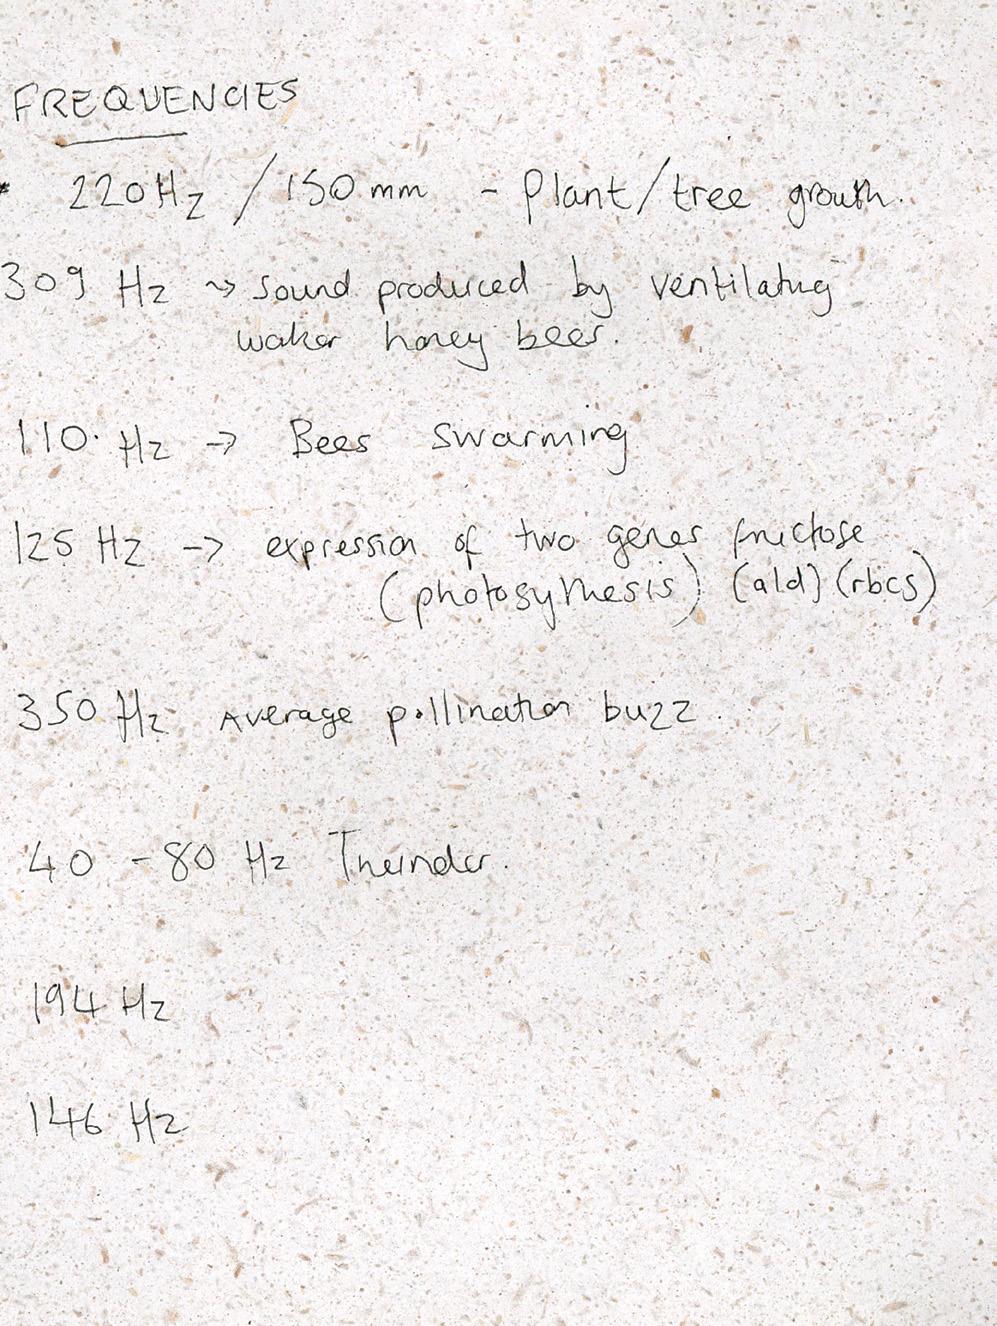 FREQUENCIES
220Hz / 150mm - Plant/tree growth.
309 Hz ~> Sound produced by ventilating
worker honey bees.
110. Hz -> Bees swarming
125 Hz -> expression of two genes fructose
(photosynthesis) (ald) (rbcs)
350 Hz Average pollination buzz.
40 - 80 Hz Thunder.
194 Hz
146 Hz